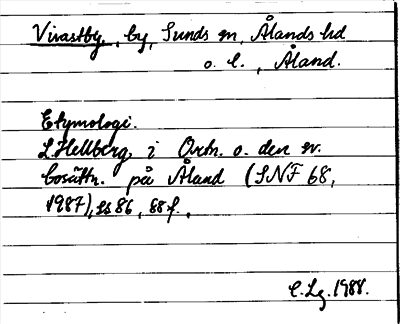 Virastby, by, Sunds sn, Ålands hd
o. l., Åland.
Etymologi.
L Hellberg, i Ortn. o. den sv.
bosättn. på Åland (SNF 68,
1987), ss 86, 88 f.,
C. Lg. 1988.